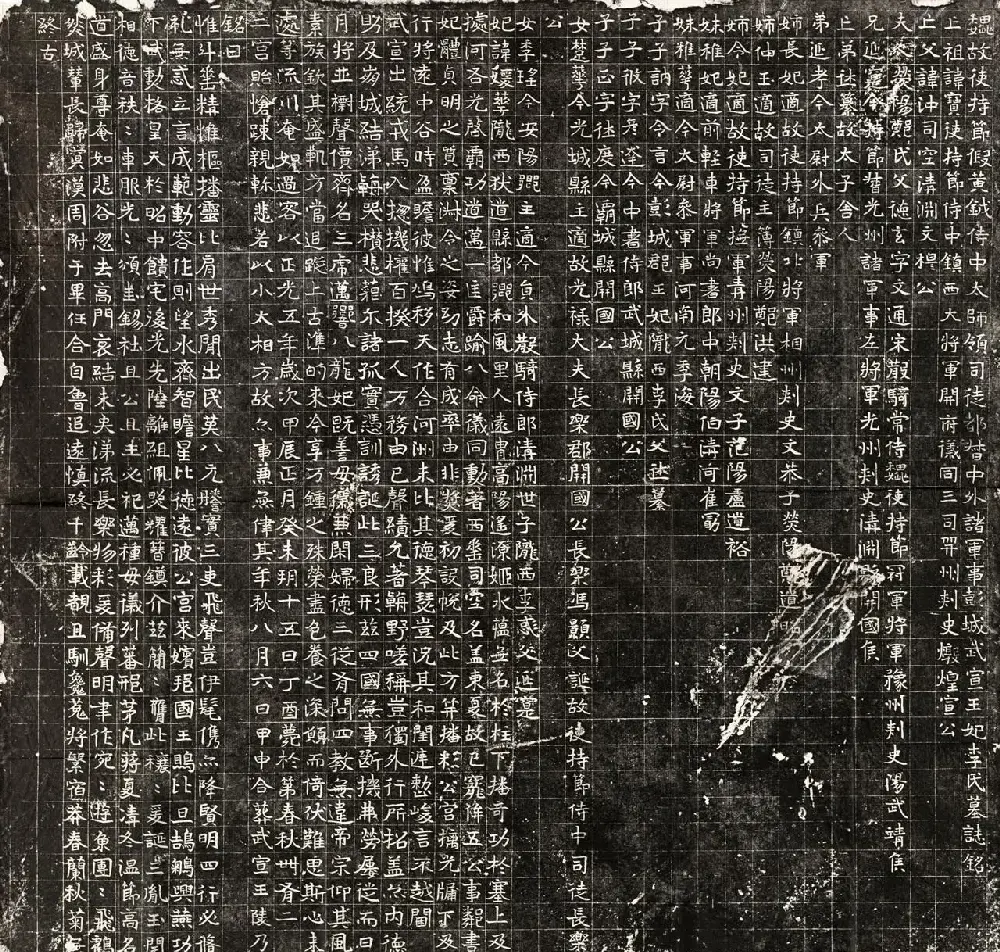 魏故使持節假黃鉞侍中太師領司徒都督中外諸軍事彭城武宣王妃李氏墓誌銘
亡祖諱寶使持節侍中鎮西大將軍開府儀同三司并州刺史燉煌宣公
亡父諱沖司空清淵文穆公
夫人滎陽鄭氏父德玄字文通宋散騎常侍魏使持節冠軍將軍豫州刺史陽武靖侯
兄延寔今持節督光州諸軍事左將軍光州刺史清淵縣開國侯
亡弟休纂故太子舍人
弟延考今太尉外兵參軍
姊長妃適故使持節鎮北將軍相州刺史文恭子滎陽鄭道昭
姊仲玉適故司徒主簿滎陽鄭洪建
姊令妃適故使持節撫軍青州刺史文子范陽盧道裕
妹稚妃適前輕車將軍尚書郎中朝陽伯清河崔勗
妹稚華適今太尉參軍事河南元季海
子子訥字令言今彭城郡王妃隴西李氏父休纂
子子攸字彥達今中書侍郎武城縣開國公
子子正字休度今霸城縣開國公
女楚華今光城縣主適故光祿大夫長樂郡開國公長樂馮顥父誕故使持節侍中司徒長樂
公
女季瑤今安陽鄉主適今員外散騎侍郎清淵世子隴西李彧父延寔
妃諱媛華隴西狄道縣都鄉和風里人遠胄高陽遙源姬水蘊至名於柱下播奇功於塞上及
據河右光啓霸功道邁一匡爵踰八命儀同勳著西垂司空名蓋東夏故已寵降五公事鄰書
妃體貞明之質稟淑令之姿幼志有成率由非獎爰初設帨及此方年播彩公宮摛光牖下及
行將遠中谷時盈瞻彼惟鳩移天作合河洲未比其德琴瑟豈況其和閨庭整峻言不越閫
武宣出統戎馬入揔機權百揆一人万務由己聲績允著翰野嗟稱豈獨外行所招蓋亦內德
助及葛城結涕輴哭攢悲藐尒諸孤寔憑訓誘誕此三良形茲四國無事斷機弗勞屢徙而日
月將並樹聲價齊名三虎邁響八龍妃既善母儀兼閑婦德三從斉問四教無違帝宗仰其風
素族欽其盛軌方當追蹤上古準的來今享万鍾之殊榮盡色養之深餙而倚伏難思斯心未
處等流川奄如過客以正光五年歲次甲辰正月癸未朔十五日丁酉薨於第春秋卌有二
二宮貽愴疎親軫悲若以小大相方故亦事兼無律其年秋八月六日甲申合葬武宣王陵乃
銘曰
惟斗垂精惟樞播靈比肩世秀閒出民英八元騰實三吏飛聲豈伊髦儁亦降賢明四行必脩
亂無貳立言成範動容作則望水齊智瞻星比德遠彼公宮來嬪邦國王鴡比旦鵠鵬興燕功
下武勳格皇天於昭中饋宅浚光先陸離組佩照耀瞽鎮介茲簡簡膺此穰穰爰誕三胤玉閏
相德音秩秩車服光光頌圭錫社且公且王必祀邁種母儀列蕃邢茅凡蔣夏凊冬溫節高名
道盛身尊奄如悲谷忽去高門哀結未央涕流長樂物彩爰備聲明聿作宛宛遊魚團團飛鶴
癸城輦長歸寞漠周附于畢任合自魯追遠慎終千齡載覩且馴毚菟將縈宿莽春蘭秋菊無
終古